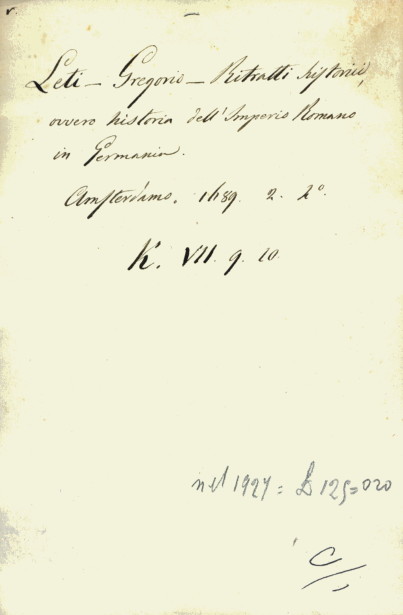 Leti - Gregorio - Ritratti historici,
ovvero historia dell'Imperio Romano
in Germania.
Amsterdamo. 1689. 2. 2°.
K. VII. 9. 10.
nel 1927 = £ 125 = oro